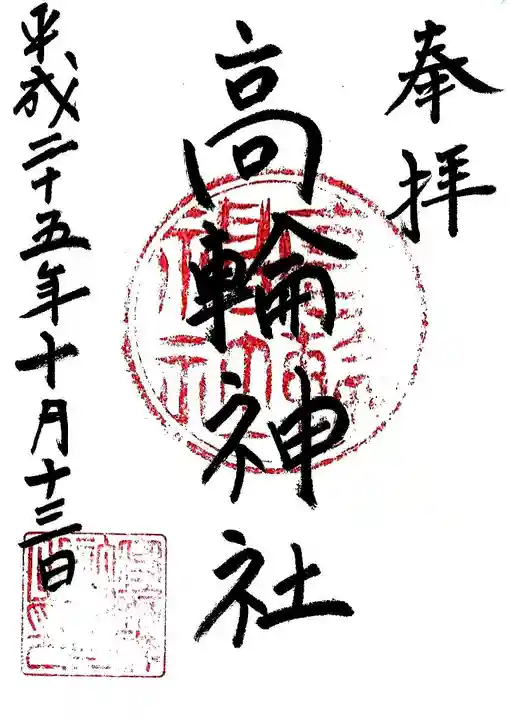 奉拝
高輪神社
平成二十五年十月十三日